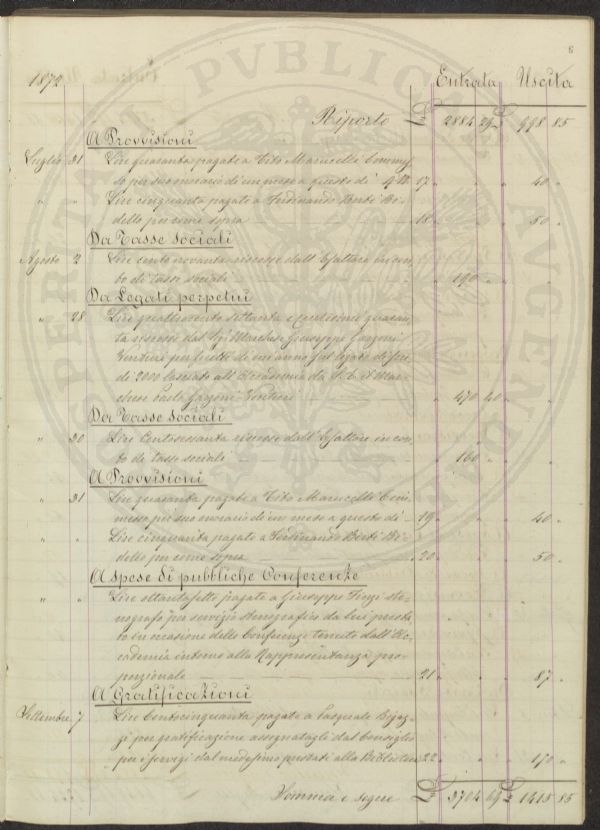 6
1872
Entrata Uscita
Riporto L. 2884 29 L. 998 85
A Provvisioni
Luglio 31 Lire quaranta pagate a Tito Marucelli Commes-
so per suo onorario di un mese a questo dì 17 " " 40 "
" " Lire cinquanta pagate a Ferdinando Berti Bi-
dello per come sopra 18 " " 50 "
Da Tasse Sociali
Agosto 2 Lire cento novanta riscosse dall' Esattore in con-
to di tasse sociali " 190 " "
Da Legati perpetui
" 28 Lire quattrocento settanta e Centesimi quaran-
ta riscosse dal Sig. Marchese Giuseppe Garzoni
Venturi per frutti di un anno sul legato di Scu-
di 2000 lasciato all' Accademia da S. E. il Mar-
chese Paolo Garzoni Venturi " 470 40 "
Da Tasse Sociali
" 30 Lire Centosessanta riscosse dall' Esattore in con-
to di tasse sociali " 160 " "
A Provvisioni
" 31 Lire quaranta pagate a Tito Marucelli Com-
messo per suo onorario di un mese a questo dì 19 " " 40 "
" " Lire cinquanta pagate a Ferdinando Berti Bi-
dello per come sopra 20 " " 50 "
A Spese di pubbliche Conferenze
" " Lire ottantasette pagate a Giuseppe Finzi ste-
nografo per servizio stenografico da lui presta-
to in occasione delle Conferenze tenute dall' Ac-
cademia intorno alla Rappresentanza pro-
porzionale 21 " " 87 "
A Gratificazioni
Settembre 7 Lire Centocinquanta pagate a Pasquale
per gratificazione assegnatagli dal Consiglio
per i servigi dal medesimo prestati alla Biblioteca 22 " "
Somma e segue L. 3704 69 L. 1415 85
PVBLICAE AVGENDAE